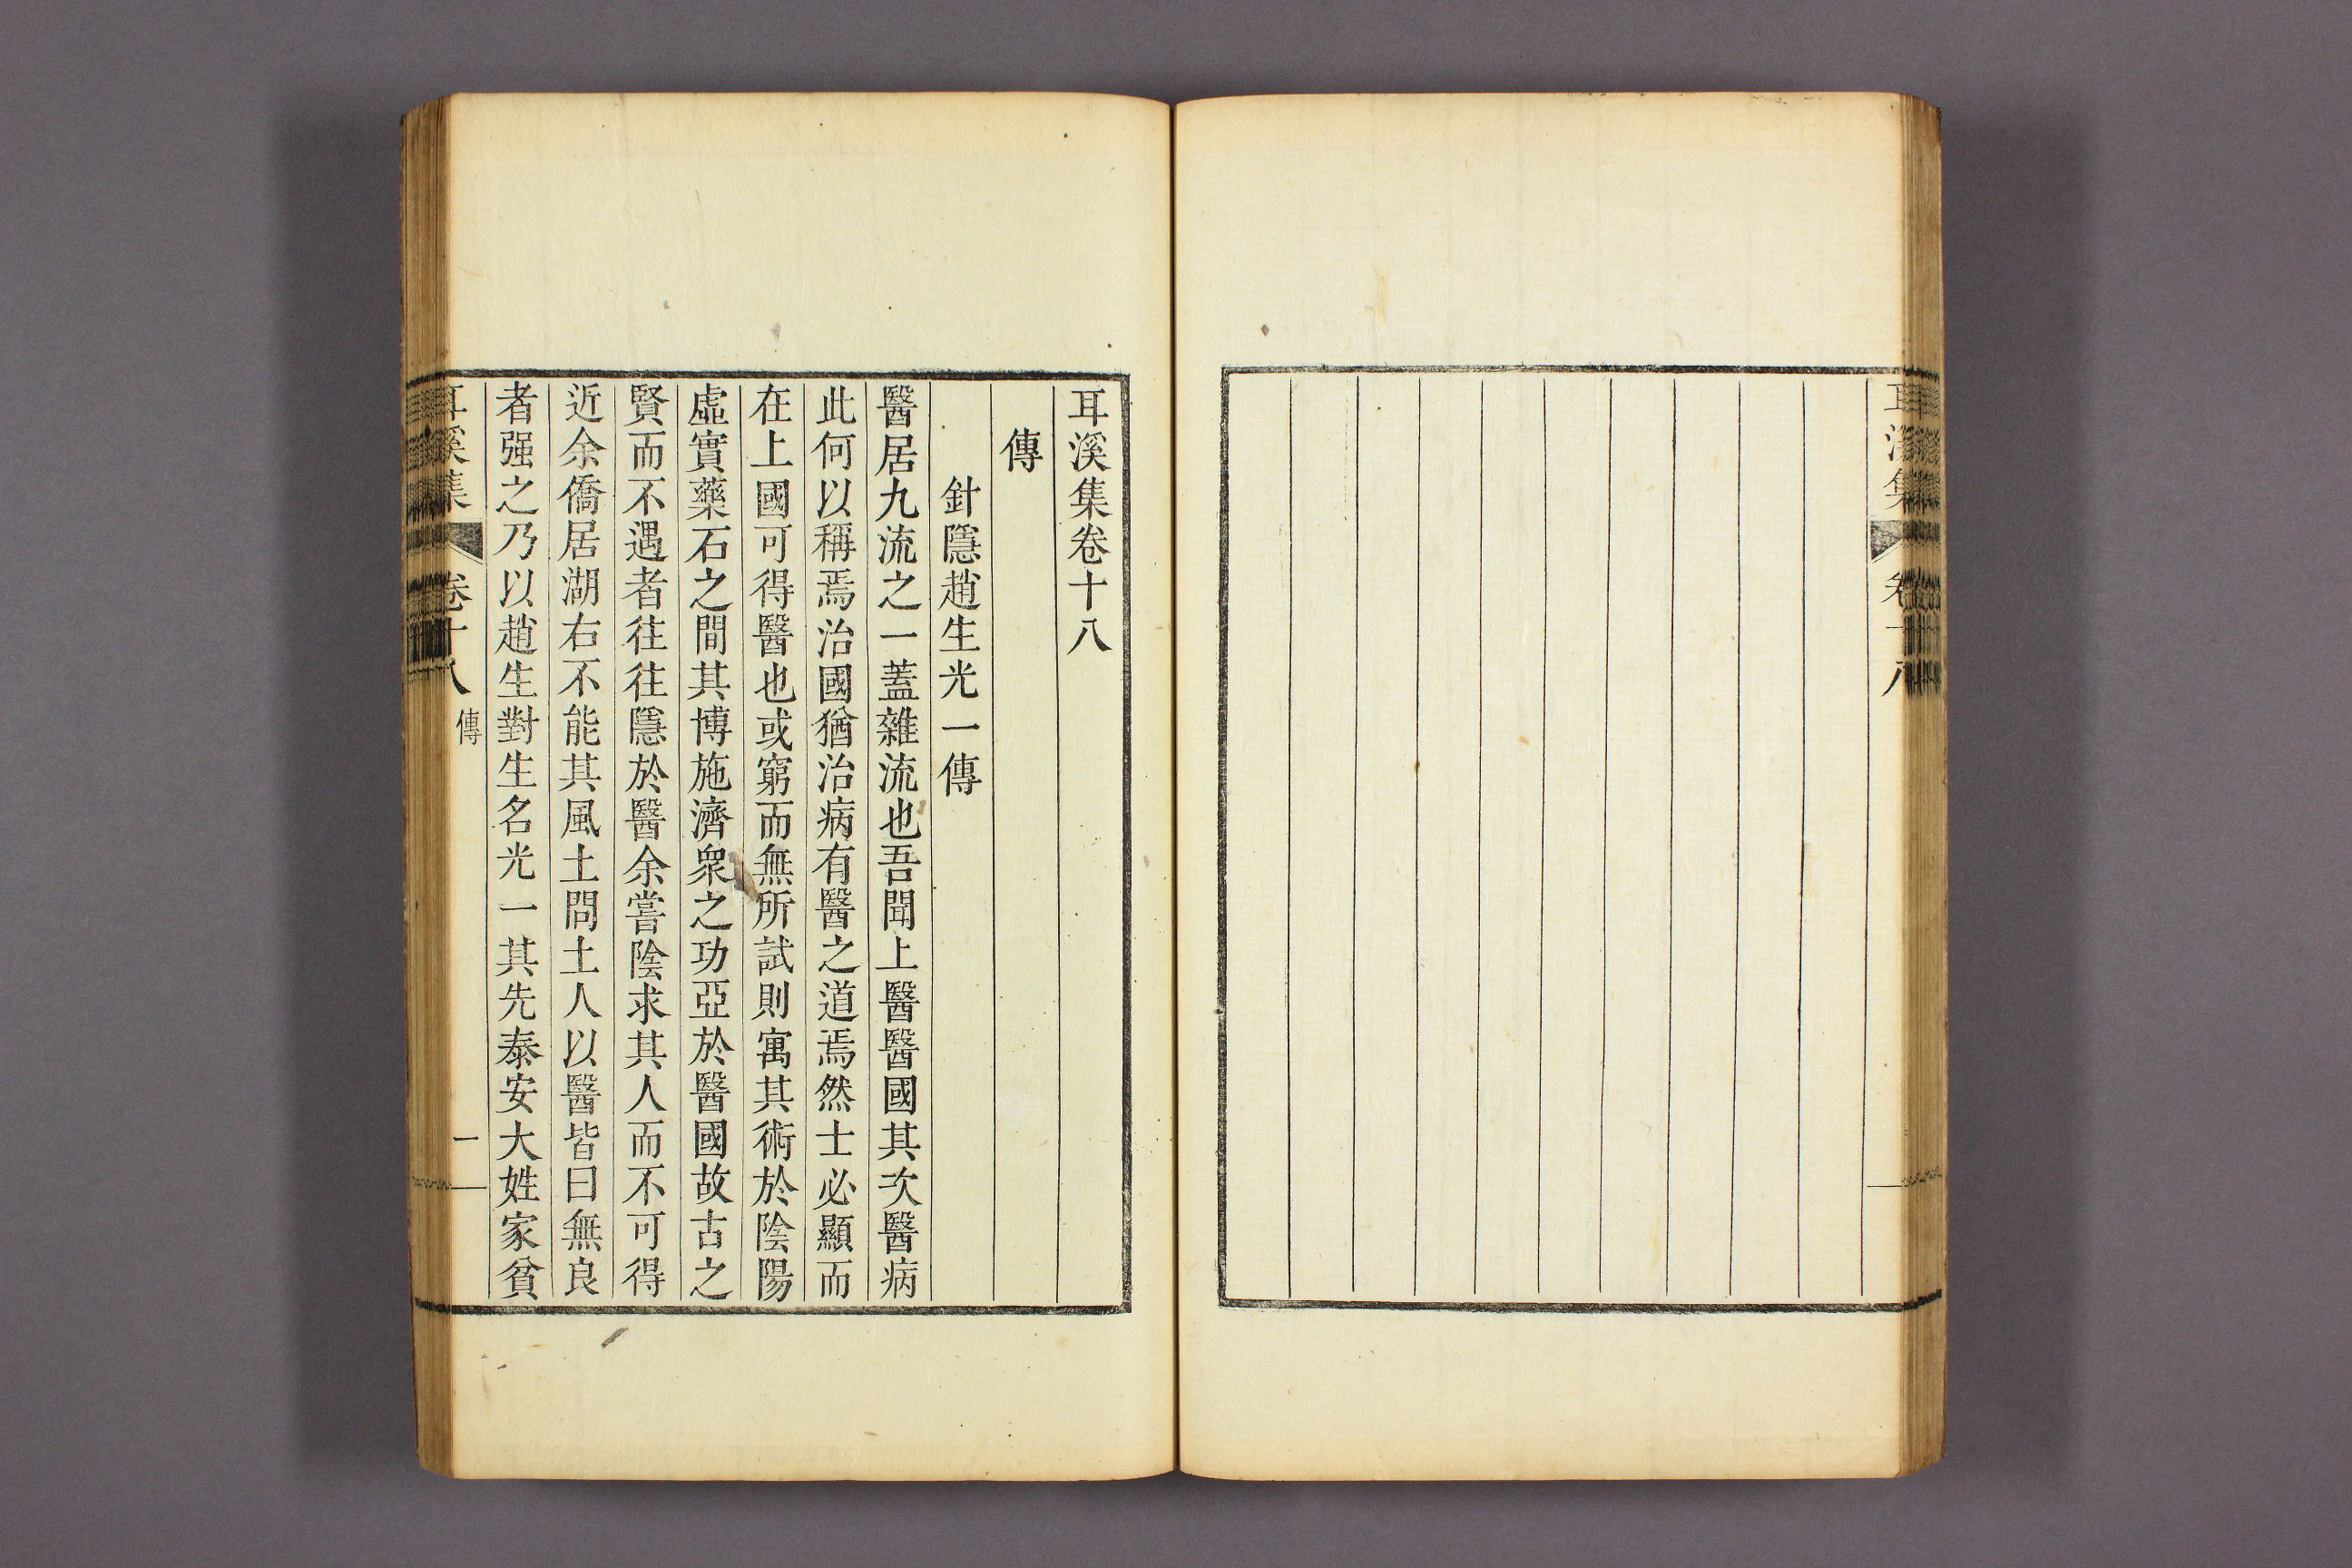 耳溪集
卷十八
耳溪集卷十八
傳
針隱趙生光一傳
醫居九流之一蓋雜流也吾聞上醫醫國其次醫病
此何以稱焉治國猶治病有醫之道焉然士必顯而
在上國可得醫也或窮而無所試則寓其術於陰陽
虛實藥石之間其博施濟衆之功亞於醫國故古之
賢而不遇者往往隱於醫余嘗陰求其人而不可得
近余僑居湖右不能其風土問土人以醫皆曰無良
者强之乃以趙生對生名光一其先泰安大姓家貧
耳溪集
卷十八
傳
一